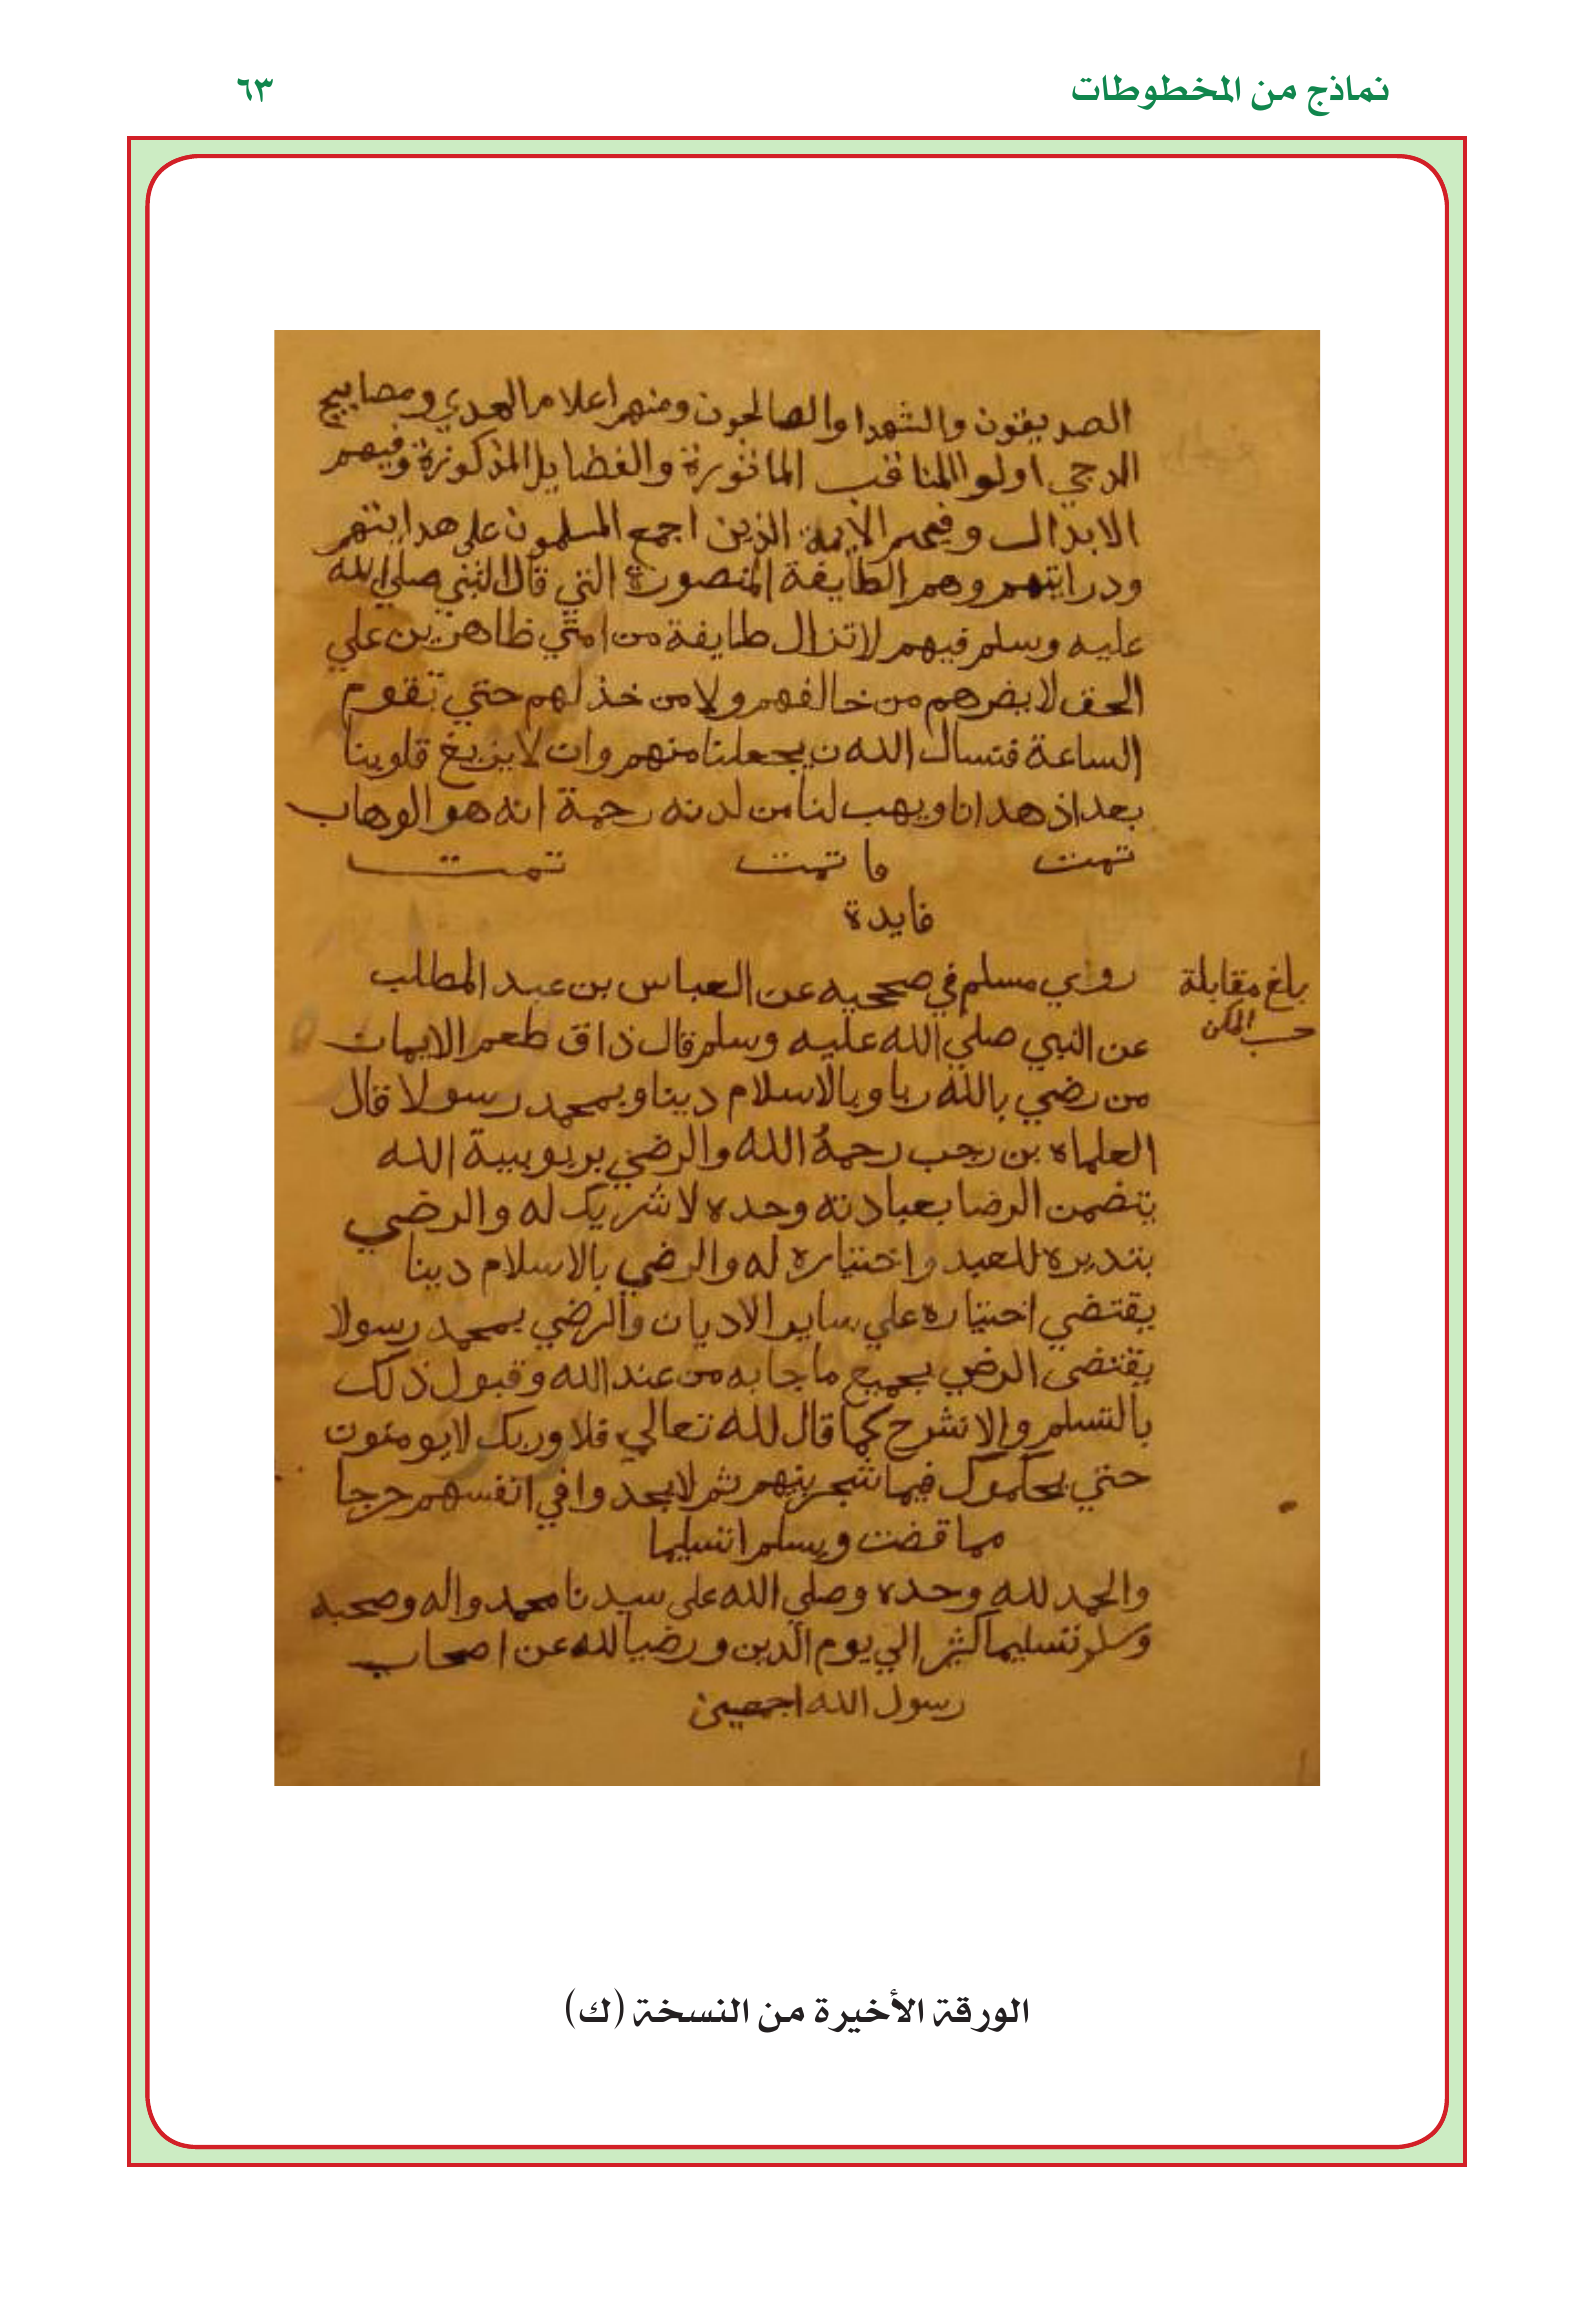 نماذج من المخطوطات ٦٣
الصديقون والشهدا والصالحون ومنهم اعلام الهدي ومصابيح
الدجي اولوا المناقب الماثورة والفضايل المذكورة وفيهم
الابدال وفيهم الايمة الذين اجمع المسلمون على هدايتهم
ودرايتهم وهم الطايفة المنصورة التي قال النبي صلي الله
عليه وسلم فيهم لا تزال طايفة من امتي ظاهرين علي
الحق لا يضرهم من خالفهم ولا من خذلهم حتي تقوم
الساعة فنسال الله ن يجعلنا منهم وان لا يزيغ قلوبنا
بعد اذ هدانا ويهب لنا من لدنه رحمة انه هو الوهاب
تمت ما تمت تمت
فايدة
روي مسلم في صححيه عن العباس بن عبد المطلب
بلغ مقابلة
حسب
عن النبي صلي الله عليه وسلم قال ذاق طعم الايمان
من رضي بالله ربا وبالاسلام دينا وبمحمد رسولا قال
العلماه بن رجب رحمهُ الله والرضي بربوبيية الله
يتضمن الرضا بعبادته وحده لا شريك له والرضي
بتدبره للعبد واختياره له والرضي بالاسلام دينا
يقتضي اختياره علي ساير الاديان والرضي بمحمد رسولا
يقتضى الرضي بجميع ما جا به من عند الله وقبول ذلك
بالتسلم والانشرح كما قال لله تعالي فلا وربك لا يومنون
حتي يحكموك فيما شجر بينهم ثم لا يجدوا في انفسهم حرجا
مما قضت ويسلموا تسليما
والحمد لله وحده وصلي الله على سيدنا محمد واله وصحبه
وسلم تسليما كثير الي يوم الدين ورضي الله عن اصحاب
رسول الله اجمعين
الورقة الأخيرة من النسخة (ك)